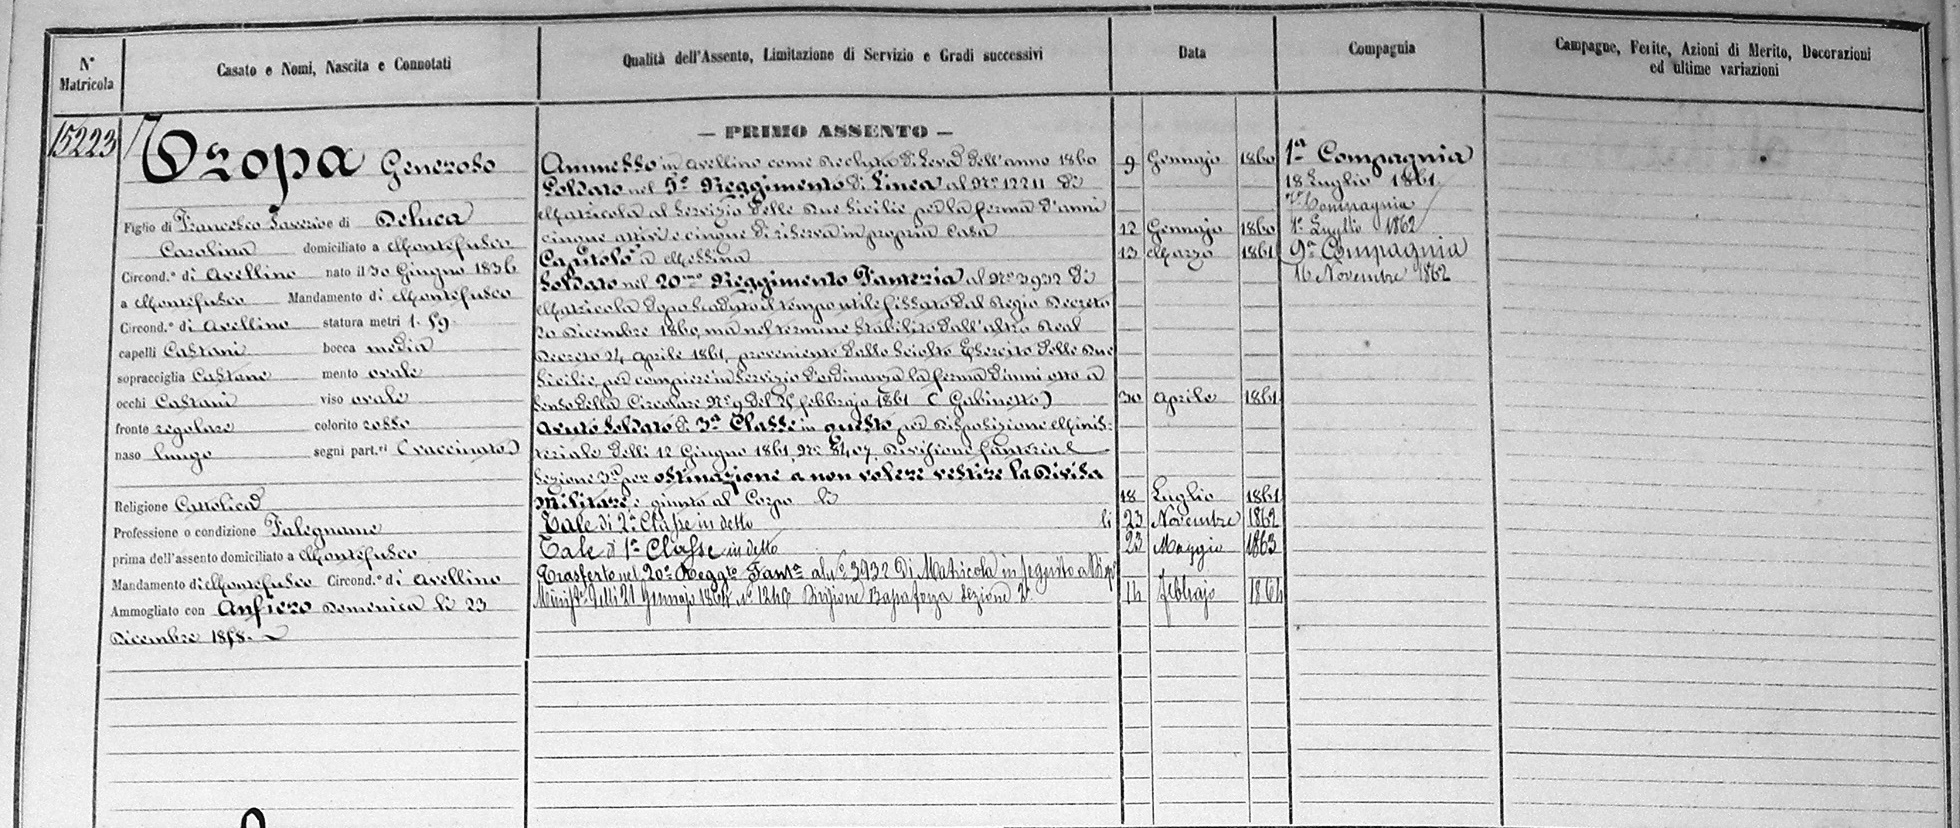 N° Matricola
Casato e Nomi, Nascita e Connotati
Qualità dell'Assento, Limitazione di Servizio e Gradi successivi
Data
Compagnia
Campagne, Ferite, Azioni di Merito, Decorazioni
ed ultime variazioni
15223
Tropa Generoso
Figlio di Francesco Saverio e di Deluca
Carolina domiciliato a Montefusco
Circond.° di Avellino nato il 30 Giugno 1836
a Montefusco Mandamento di Montefusco
Circond.° di Avellino statura metri 1. 59.
capelli Castani bocca media
sopracciglia Castane mento ovale
occhi Castani viso ovale
fronte regolare colorito rosso
naso lungo segni part.ri (vaccinato)
Religione Cattolica
Professione o condizione Falegname
prima dell'assento domiciliato a Montefusco
Mandamento di Montefusco Circond.° di Avellino
Ammogliato con Anfiero Domenica li 23
Dicembre 1858.
— PRIMO ASSENTO —
Ammesso in Avellino come Recluta di Leva dell'anno 1860 9 Gennajo 1860
Soldato nel 5° Reggimento di Linea al N° 12211 di
Matricola al Servizio delle Due Sicilie per la ferma d'anni
cinque attivi e cinque di riserva in propria Casa 12 Gennajo 1860
Capitolò a Messina 13 Marzo 1861
Soldato nel 20mo Reggimento Fanteria al N° 3932 di
Matricola dopo scaduto il tempo utile fissato dal Regio Decreto
20 Dicembre 1860, ma nel termine stabilito dall'altro Real
Decreto 24 Aprile 1861, proveniente dallo sciolto Esercito delle Due
Sicilie, per compiere in Servizio d'ordinanza la ferma d'anni otto a
senso della Circolare N° 9 del 25 febbrajo 1861 (Gabinetto) 30 Aprile 1861
Avuto Soldato di 3a Classe in questo per disposizione Minis-
teriale delli 12 Giugno 1861, N° 8407, Divisione fanteria
Sezione 3a per ostinazione a non volere vestire la Divisa
Militare e giunto al Corpo li 18 Luglio 1861
Tale di 2a Classe in detto li 23 Novembre 1862
Tale di 1a Classe in detto 23 Maggio 1863
Trasferto nel 20° Reggto Fanta al N° 3932 Di Matricola in seguito a
Minist.e delli 21 Gennajo 1864 N° 1240 Divisione Bassa forza Sezione 2a 14 febbrajo 1864
1a Compagnia
18 Luglio 1861.
Compagnia
1° Luglio 1862
9a Compagnia
16 Novembre 1862